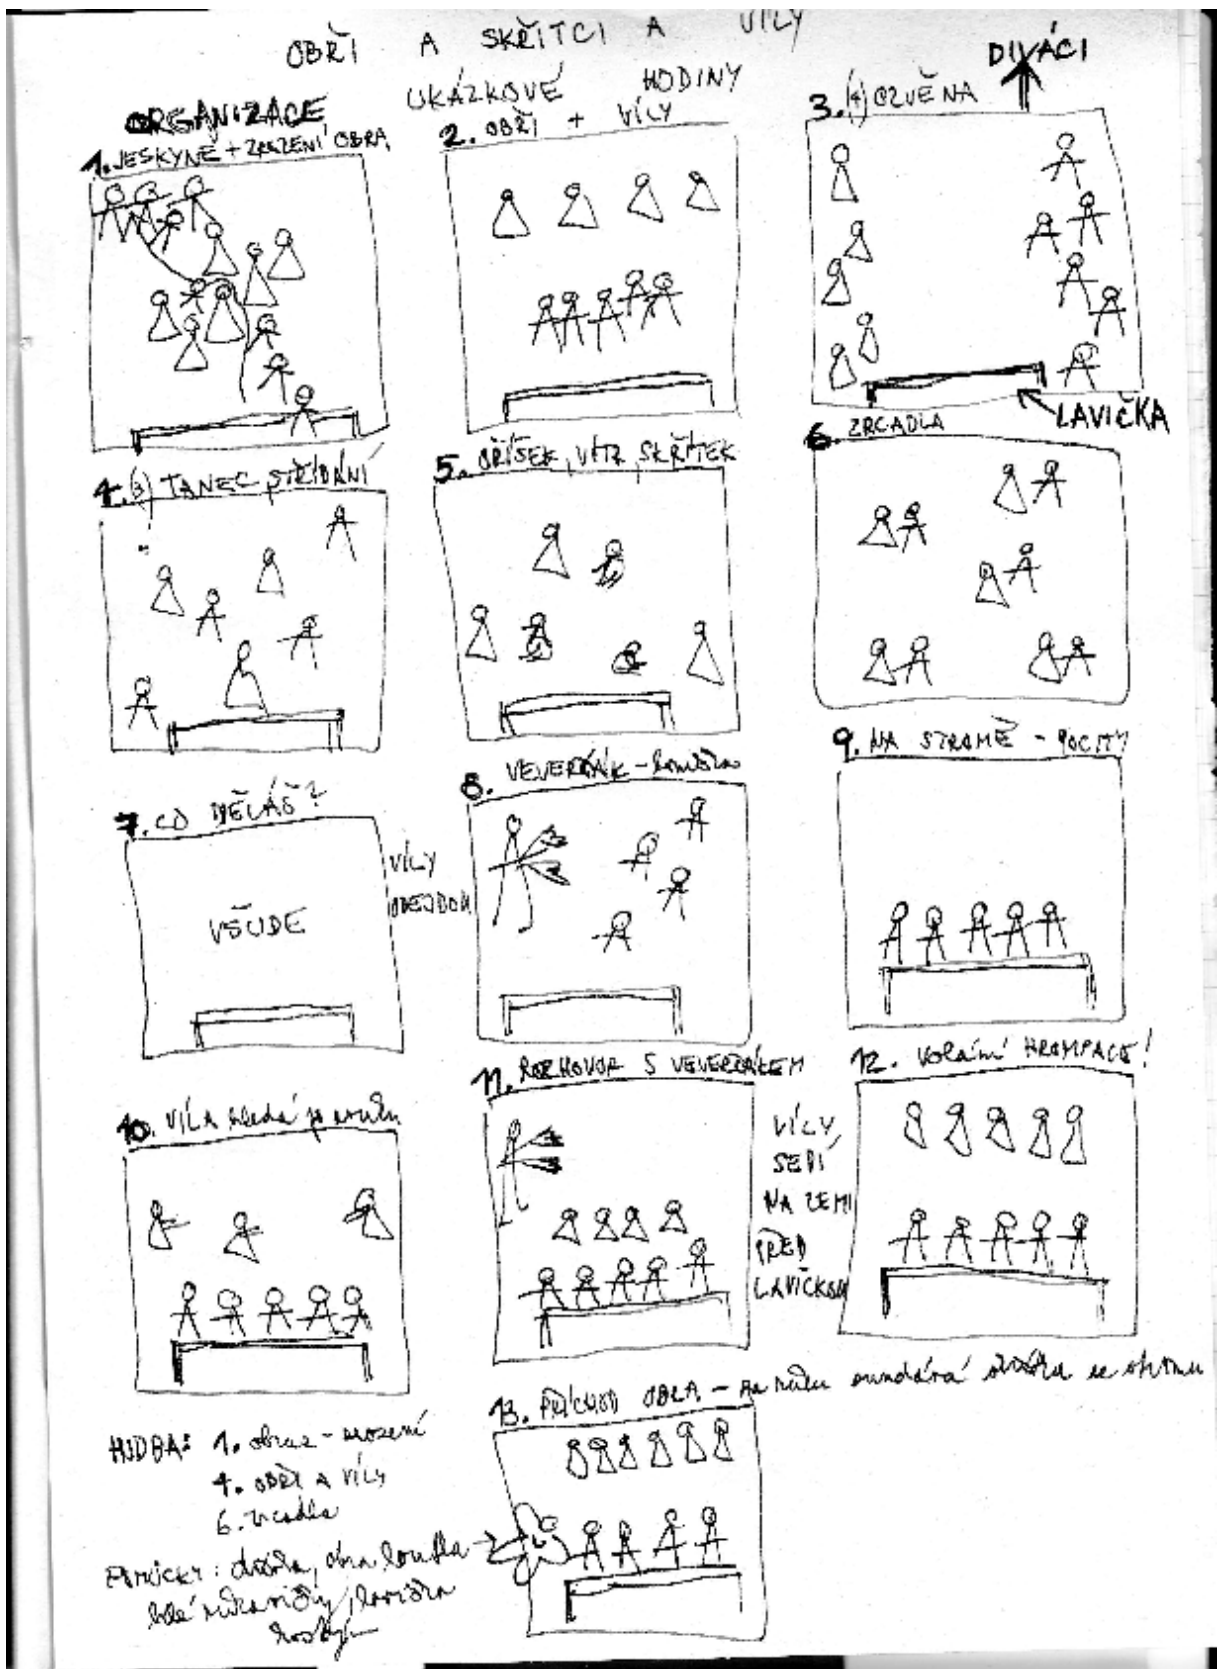 OBŘI A SKŘÍTCI A VÍLY
UKÁZKOVÉ HODINY
ORGANIZACE
DIVÁCI
1. JESKYNĚ + ZROZENÍ OBRA
2. OBŘI + VÍLY
3. (4) OZVĚNA
LAVIČKA
4. (3) TANEC, STŘÍDÁNÍ
5. OŘÍŠEK, VÍTR, SKŘÍTEK
6. ZRCADLA
7. CO DĚLÁŠ?
VŠUDE
VÍLY
ODEJDOU
8. VEVERČÁK -
9. NA STROMĚ - POCITY
10. VÍLA hledá
11. ROZHOVOR S VEVERČÁKEM
VÍLY,
SEDÍ
NA ZEMI
PŘED
LAVIČKOU
12. Volání HROMPACE!
13. PŘÍCHOD OBRA - sundává ze stromu
HUDBA: 1. obraz - zrození
4. OBŘI A VÍLY
6. zrcadla
POMŮCKY: loutka
bílé lavička
kostým